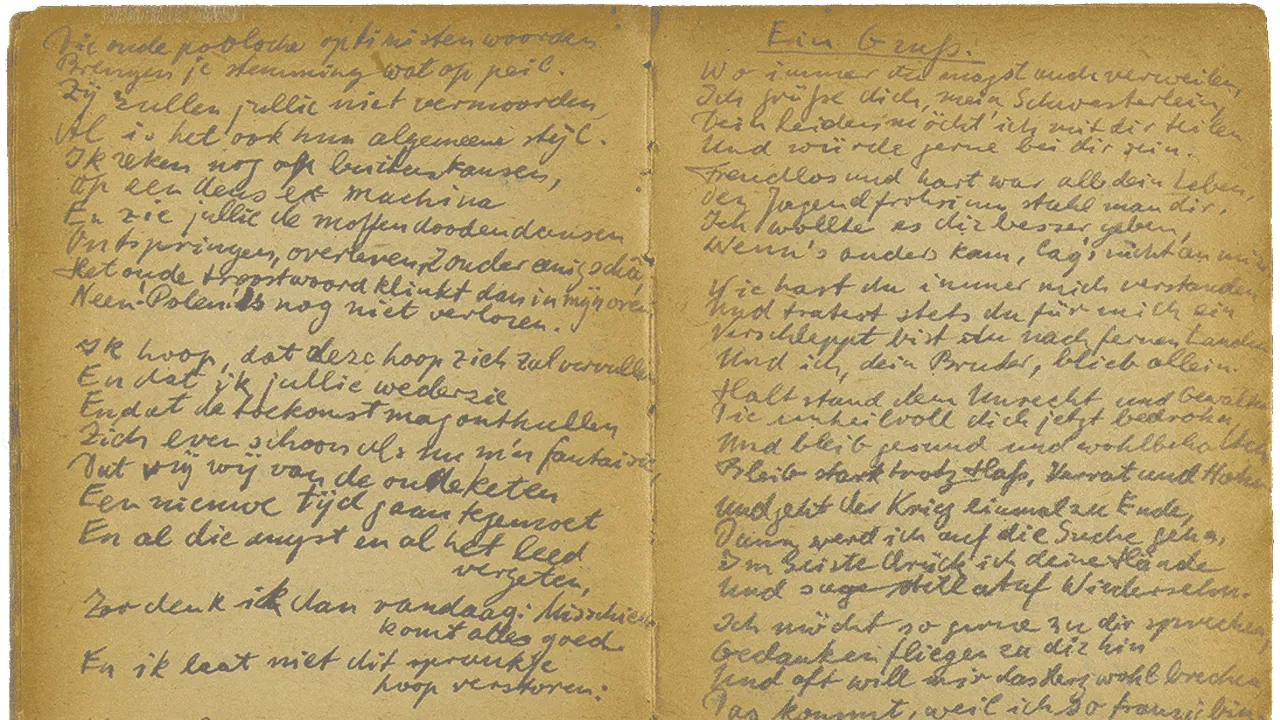 Die oude poolsche optimisten woorden
Brengen je stemming wat op peil.
Zij zullen jullie niet vermoorden
Al is het ook hun algemeene stijl.
Ik reken nog op buitenkansen,
Op een deus ex machina
En zie jullie de moffendoodendansen
Ontspringen, overleven, zonder eenig
Het oude troostwoord klinkt dan in mijn
Neen: Polen is nog niet verloren.
Ik hoop, dat deze hoop zich zal vervullen
En dat ik jullie wederzie
En dat de toekomst mag onthullen
Zich even schoon als nu m'n
Dat wij van de
Een nieuwe tijd gaan tegemoet
En al die angst en al het leed
vergeten,
Zoo denk ik dan vandaag: Misschien
komt alles goed
En ik laat niet dit sprankje
hoop verstoren:
Ein Gruß.
Wo immer du magst auch verweilen,
Ich grüße dich, mein Schwesterlein,
Dein Leiden möcht' ich mit dir teilen
Und würde gerne bei dir sein.
Freudlos und hart war all dein Leben,
Den Jugendfrohsinn stahl man dir.
Ich wollte es dir besser geben,
Wenn's anders kam, lag's nicht an
Wie hast du immer mich verstanden
Und tratest stets du für mich ein
Verschleppt bist du nach fernen Landen
Und ich, dein Bruder, blieb allein.
Halt stand dem Unrecht und
Die unheilvoll dich jetzt bedrohn
Und bleib gesund und wohlbehalten
Bleib stark trotz Haß, Verrat und Hohn
und geht der Krieg einmal zu Ende,
Dann werd ich auf die Suche gehn,
Im Geiste drück ich deine Hände
Und sage still auf Wiedersehn.
Ich möcht so gerne zu dir sprechen,
Gedanken fliegen zu dir hin
Und oft will mir das Herz wohl brechen,
Das kommt, weil ich so